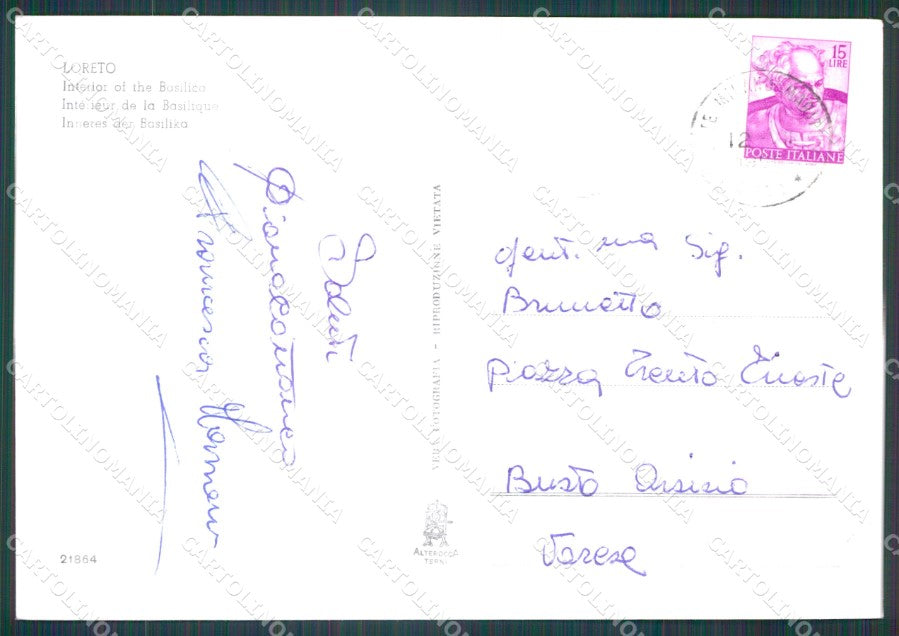 LORETO
Interior of the Basilica
Intérieur de la Basilique
Inneres der Basilika
15
LIRE
POSTE ITALIANE
12
Saluti
Francesca
VERA FOTOGRAFIA - RIPRODUZIONE VIETATA
Gent.ma Sig.
Brunetto
piazza Trento Trieste
Busto Arsizio
Varese
21864
ALTEROCCA
TERNI
CARTOLINOMANIA